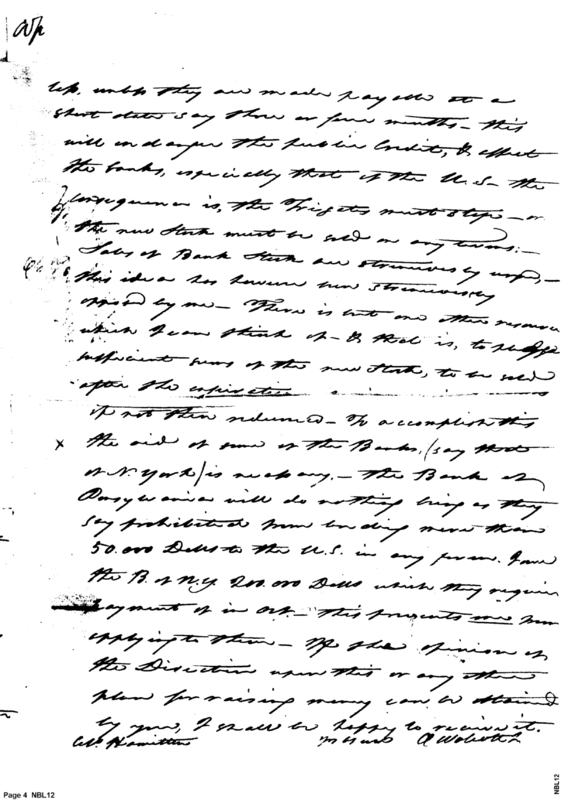 up. unless they are made payable at a
short date say three or four months – this
will endanger the public Credit, & affect
the banks, especially that of the U.S – the
consequence is, the Frigates must stop – or
the new Stock must be sold on any terms: –
Sales of Bank Stock are strenuously urged, –
this idea has however been strenuously
opposed by me – There is but one other resource
which I can think of – & that is, to pledge
sufficient sums of the new Stock, to be sold
after the expiration
if not then redeemed – To accomplish this
x the aid of some of the Banks, (say that
of N. York) is necessary. – the Bank of
Pensylvania will do nothing being as they
say prohibited from lending more than
50.000 Dolls to the U.S. in any form. I owe
the B. of N.Y. 200.000 Dolls which they require
payment of in Oct. – this prevents me from
applying to them – If the opinion of
the Direction upon this or any other
plan for raising money can be obtained
by you, I shall be happy to receive it.
Col. Hamilton
Wolcott
Page 4 NBL12
NBL12